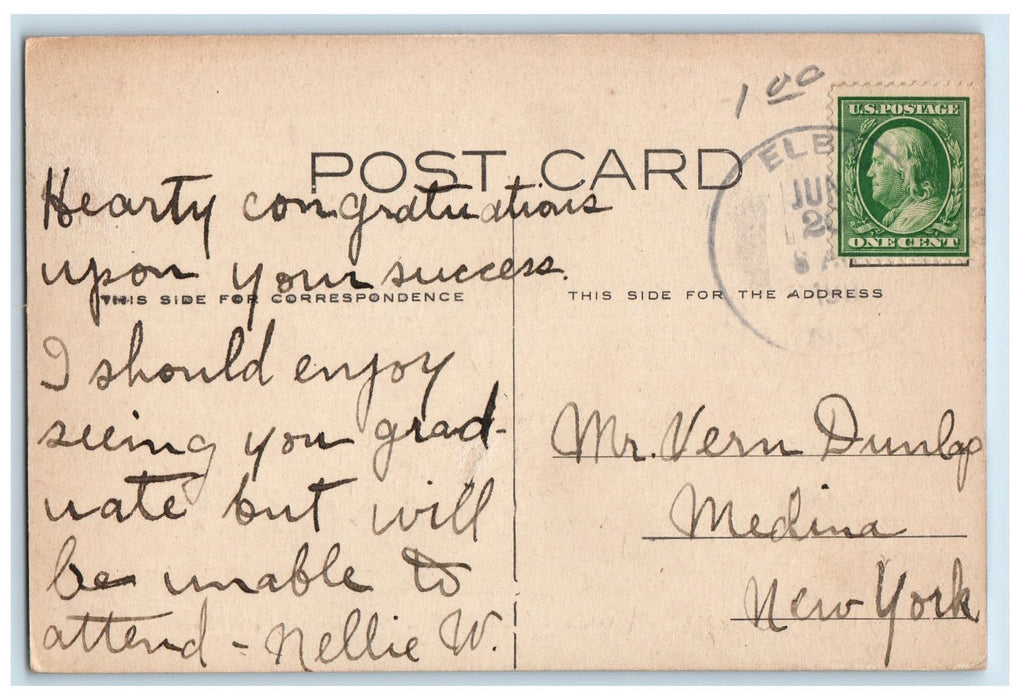 1 00
U.S. POSTAGE
ONE CENT
ELBA
JUN
20
POST CARD
THIS SIDE FOR CORRESPONDENCE
THIS SIDE FOR THE ADDRESS
Hearty congratuations
upon your success.
I should enjoy
seeing you grad-
uate but will
be unable to
attend - Nellie W.
Mr. Vern Dunlap
Medina
New York